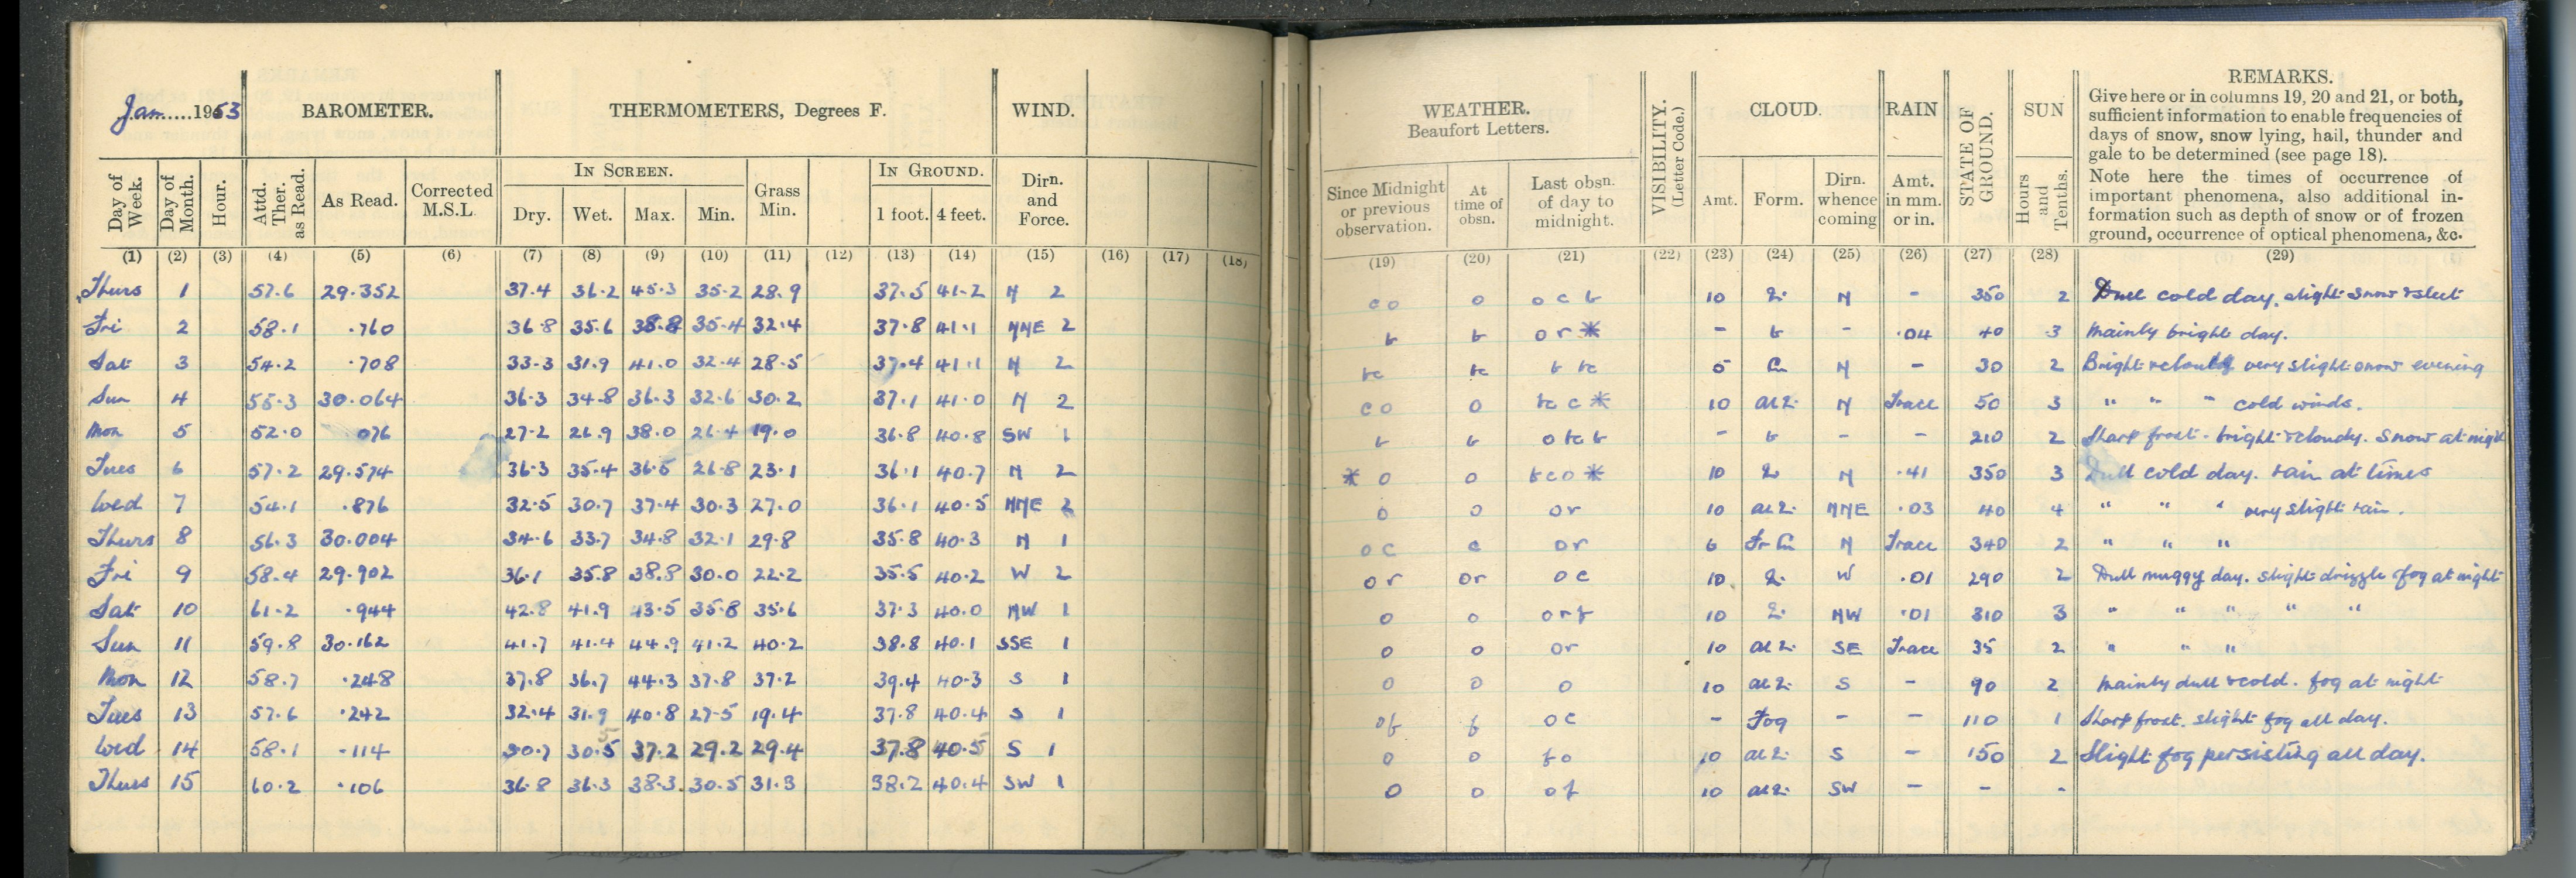 Jan.....1953 BAROMETER. THERMOMETERS, Degrees F. WIND. WEATHER. Beaufort Letters. VISIBILITY. (Letter Code.) CLOUD. RAIN STATE OF GROUND. SUN REMARKS.
Give here or in columns 19, 20 and 21, or both,
sufficient information to enable frequencies of
days of snow, snow lying, hail, thunder and
gale to be determined (see page 18).
Note here the times of occurrence of
important phenomena, also additional in-
formation such as depth of snow or of frozen
ground, occurrence of optical phenomena, &c.
Day of Week. Day of Month. Hour. Attd. Ther. as Read. As Read. Corrected M.S.L. IN SCREEN. Dry. Wet. Max. Min. Grass Min. IN GROUND. 1 foot. 4 feet. Dirn. and Force. Since Midnight or previous observation. At time of obsn. Last obsn. of day to midnight. Amt. Form. Dirn. whence coming Amt. in mm. or in. Hours and Tenths.
(1) (2) (3) (4) (5) (6) (7) (8) (9) (10) (11) (12) (13) (14) (15) (16) (17) (18) (19) (20) (21) (22) (23) (24) (25) (26) (27) (28) (29)
Thurs 1 57.6 29.352 37.4 36.2 45.3 35.2 28.9 37.5 41.2 N 2 co o o c b 10 N - 350 2 Dull cold day, slight snow & sleet
Fri 2 58.1 .760 36.8 35.6 38.8 35.4 32.4 37.8 41.1 NNE 2 b b o r * - b - .04 40 3 Mainly bright day.
Sat 3 54.2 .708 33.3 31.9 41.0 32.4 28.5 37.4 41.1 N 2 bc bc b bc 5 N - 30 2 Bright & cloudy very slight snow evening
Sun 4 55.3 30.064 36.3 34.8 36.3 32.6 30.2 37.1 41.0 N 2 co o bc c * 10 N Trace 50 3 " " " cold winds.
Mon 5 52.0 076 27.2 26.9 38.0 26.4 19.0 36.8 40.8 SW 1 b b o bc b - b - - 210 2 Sharp frost - bright & cloudy. Snow at night
Tues 6 57.2 29.574 36.3 35.4 36.5 26.8 23.1 36.1 40.7 N 2 * o o bco * 10 N .41 350 3 Dull cold day. rain at times
Wed 7 54.1 .876 32.5 30.7 37.4 30.3 27.0 36.1 40.5 NNE 2 o o or 10 NNE .03 40 4 " " " very slight rain.
Thurs 8 56.3 30.004 34.6 33.7 34.8 32.1 29.8 35.8 40.3 N 1 oc c or 6 N Trace 340 2 " " "
Fri 9 58.4 29.902 36.1 35.8 38.8 30.0 22.2 35.5 40.2 W 2 or or oc 10 W .01 290 2 Dull muggy day. slight drizzle & fog at night
Sat 10 61.2 .944 42.8 41.9 43.5 35.8 35.6 37.3 40.0 NW 1 o o orf 10 NW .01 310 3 " " " " "
Sun 11 59.8 30.162 41.7 41.4 44.9 41.2 40.2 38.8 40.1 SSE 1 o o or 10 SE Trace 35 2 " " "
Mon 12 58.7 .248 37.8 36.7 44.3 37.8 37.2 39.4 40.3 S 1 o o o 10 S - 90 2 Mainly dull & cold. fog at night
Tues 13 57.6 .242 32.4 31.9 40.8 27.5 19.4 37.8 40.4 S 1 of f oc - Fog - - 110 1 Sharp frost. slight fog all day.
Wed 14 58.1 .114 30.7 30.5 37.2 29.2 29.4 37.8 40.5 S 1 o o fo 10 S - 150 2 Slight fog persisting all day.
Thurs 15 60.2 .106 36.8 36.3 38.3 30.5 31.3 38.2 40.4 SW 1 o o of 10 SW - - -